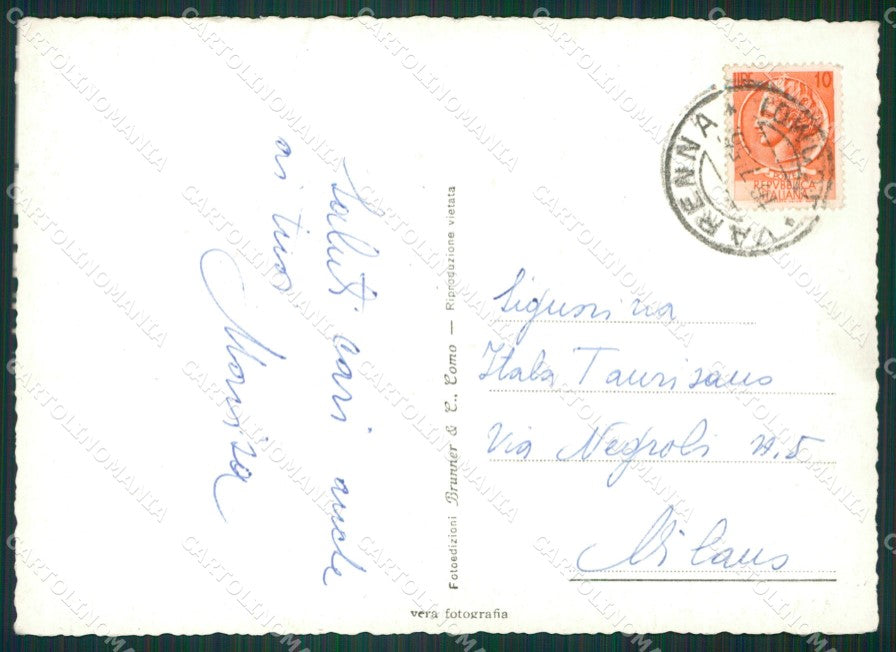 Saluti cari anche
ai tuoi
Marisa
Fotoedizioni Brunner & C., Como — Riproduzione vietata
vera fotografia
LIRE 10
REPVBBLICA
ITALIANA
VARENNA
Signorina
Itala Taurisano
Via Negroli n. 5
Milano
CARTOLINOMANIA